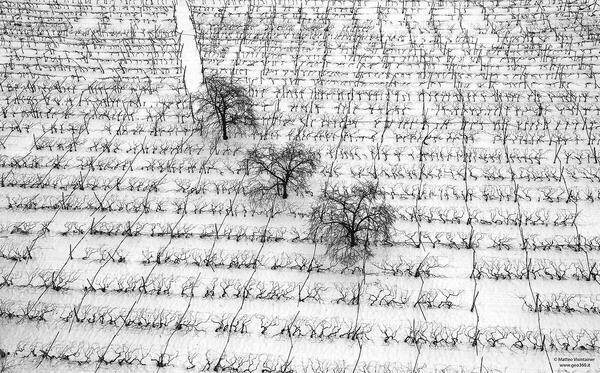 © Matteo Visintainer
www.geo360.it